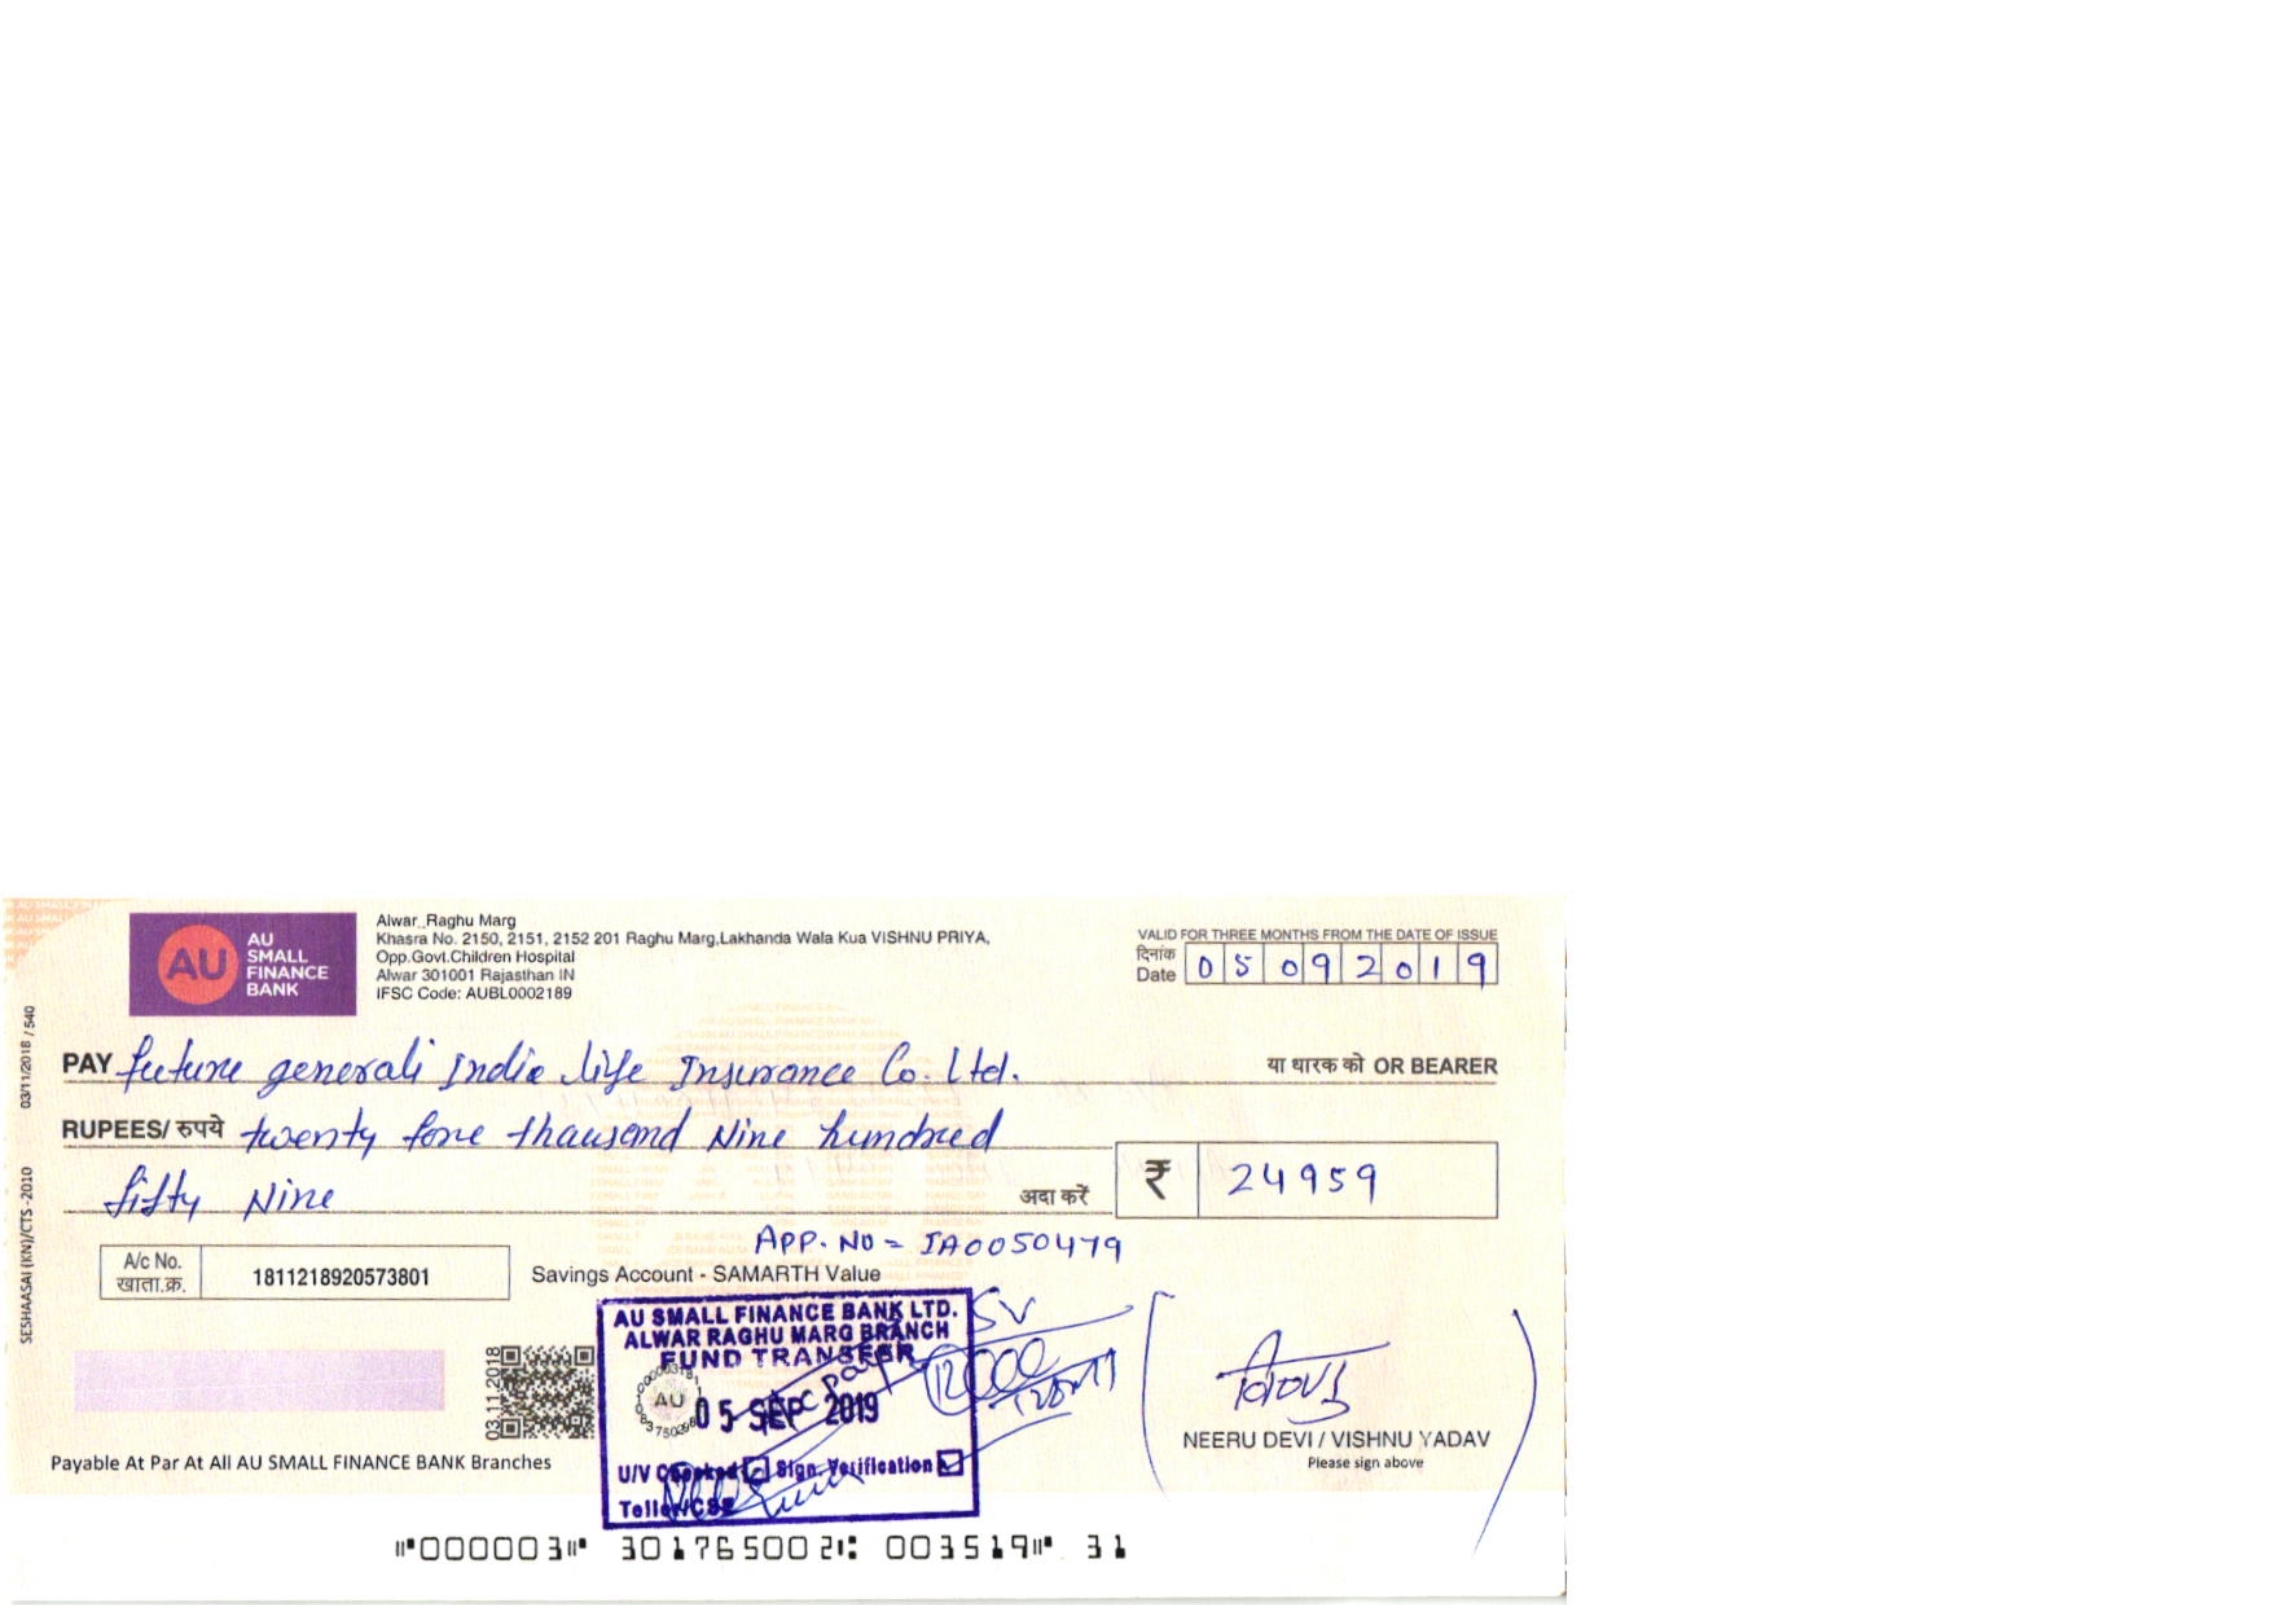 AU
AU
SMALL
FINANCE
BANK
Alwar_Raghu Marg
Khasra No. 2150, 2151, 2152 201 Raghu Marg,Lakhanda Wala Kua VISHNU PRIYA,
Opp.Govt.Children Hospital
Alwar 301001 Rajasthan IN
IFSC Code: AUBL0002189
VALID FOR THREE MONTHS FROM THE DATE OF ISSUE
दिनांक
Date 0 5 0 9 2 0 1 9
PAY future generali India life Insurance Co. Ltd. या धारक को OR BEARER
RUPEES/ रुपये twenty fore thausand Nine hundred
fifty Nine अदा करें ₹ 24959
APP. NO = IA0050479
A/c No.
खाता.क्र. 1811218920573801 Savings Account - SAMARTH Value
AU SMALL FINANCE BANK LTD.
ALWAR RAGHU MARG BRANCH
FUND TRANSFER
AU 05 SEP 2019
U/V Checked Sign. Verification
Teller/CSE
SV
03.11.2018
NEERU DEVI / VISHNU YADAV
Please sign above
Payable At Par At All AU SMALL FINANCE BANK Branches
SESHAASAI (KN)/CTS -2010 03/11/2018 / 540
⑈000003⑈ 301765002⑆ 003519⑈ 31